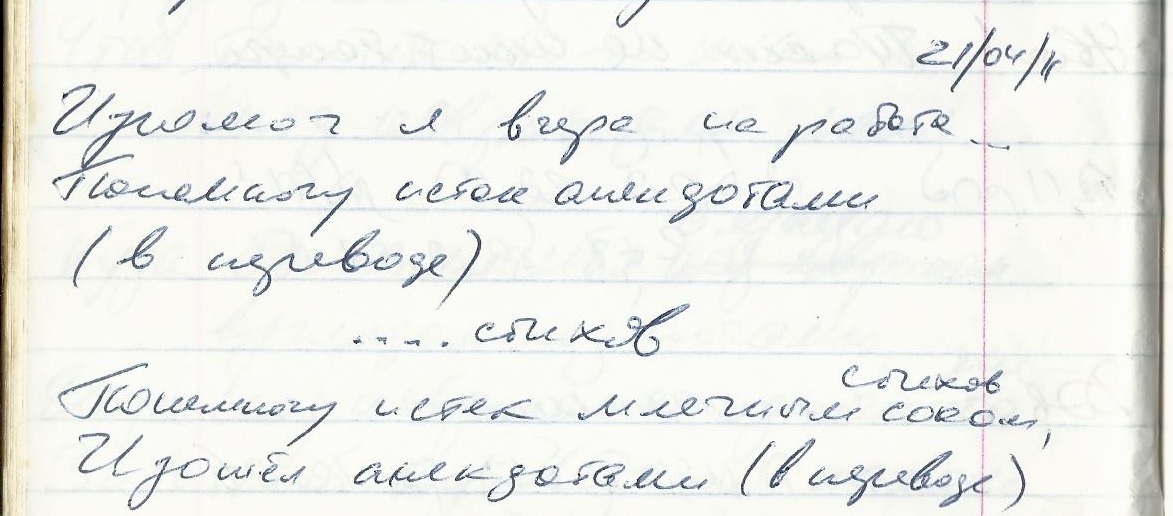 21/04/11
Изнемог я вчера на работе...
Понемногу истек анекдотами
(в переводе)
.... стихов
стихов
Понемногу истек млечным соком,
Изошёл анекдотами (в переводе)